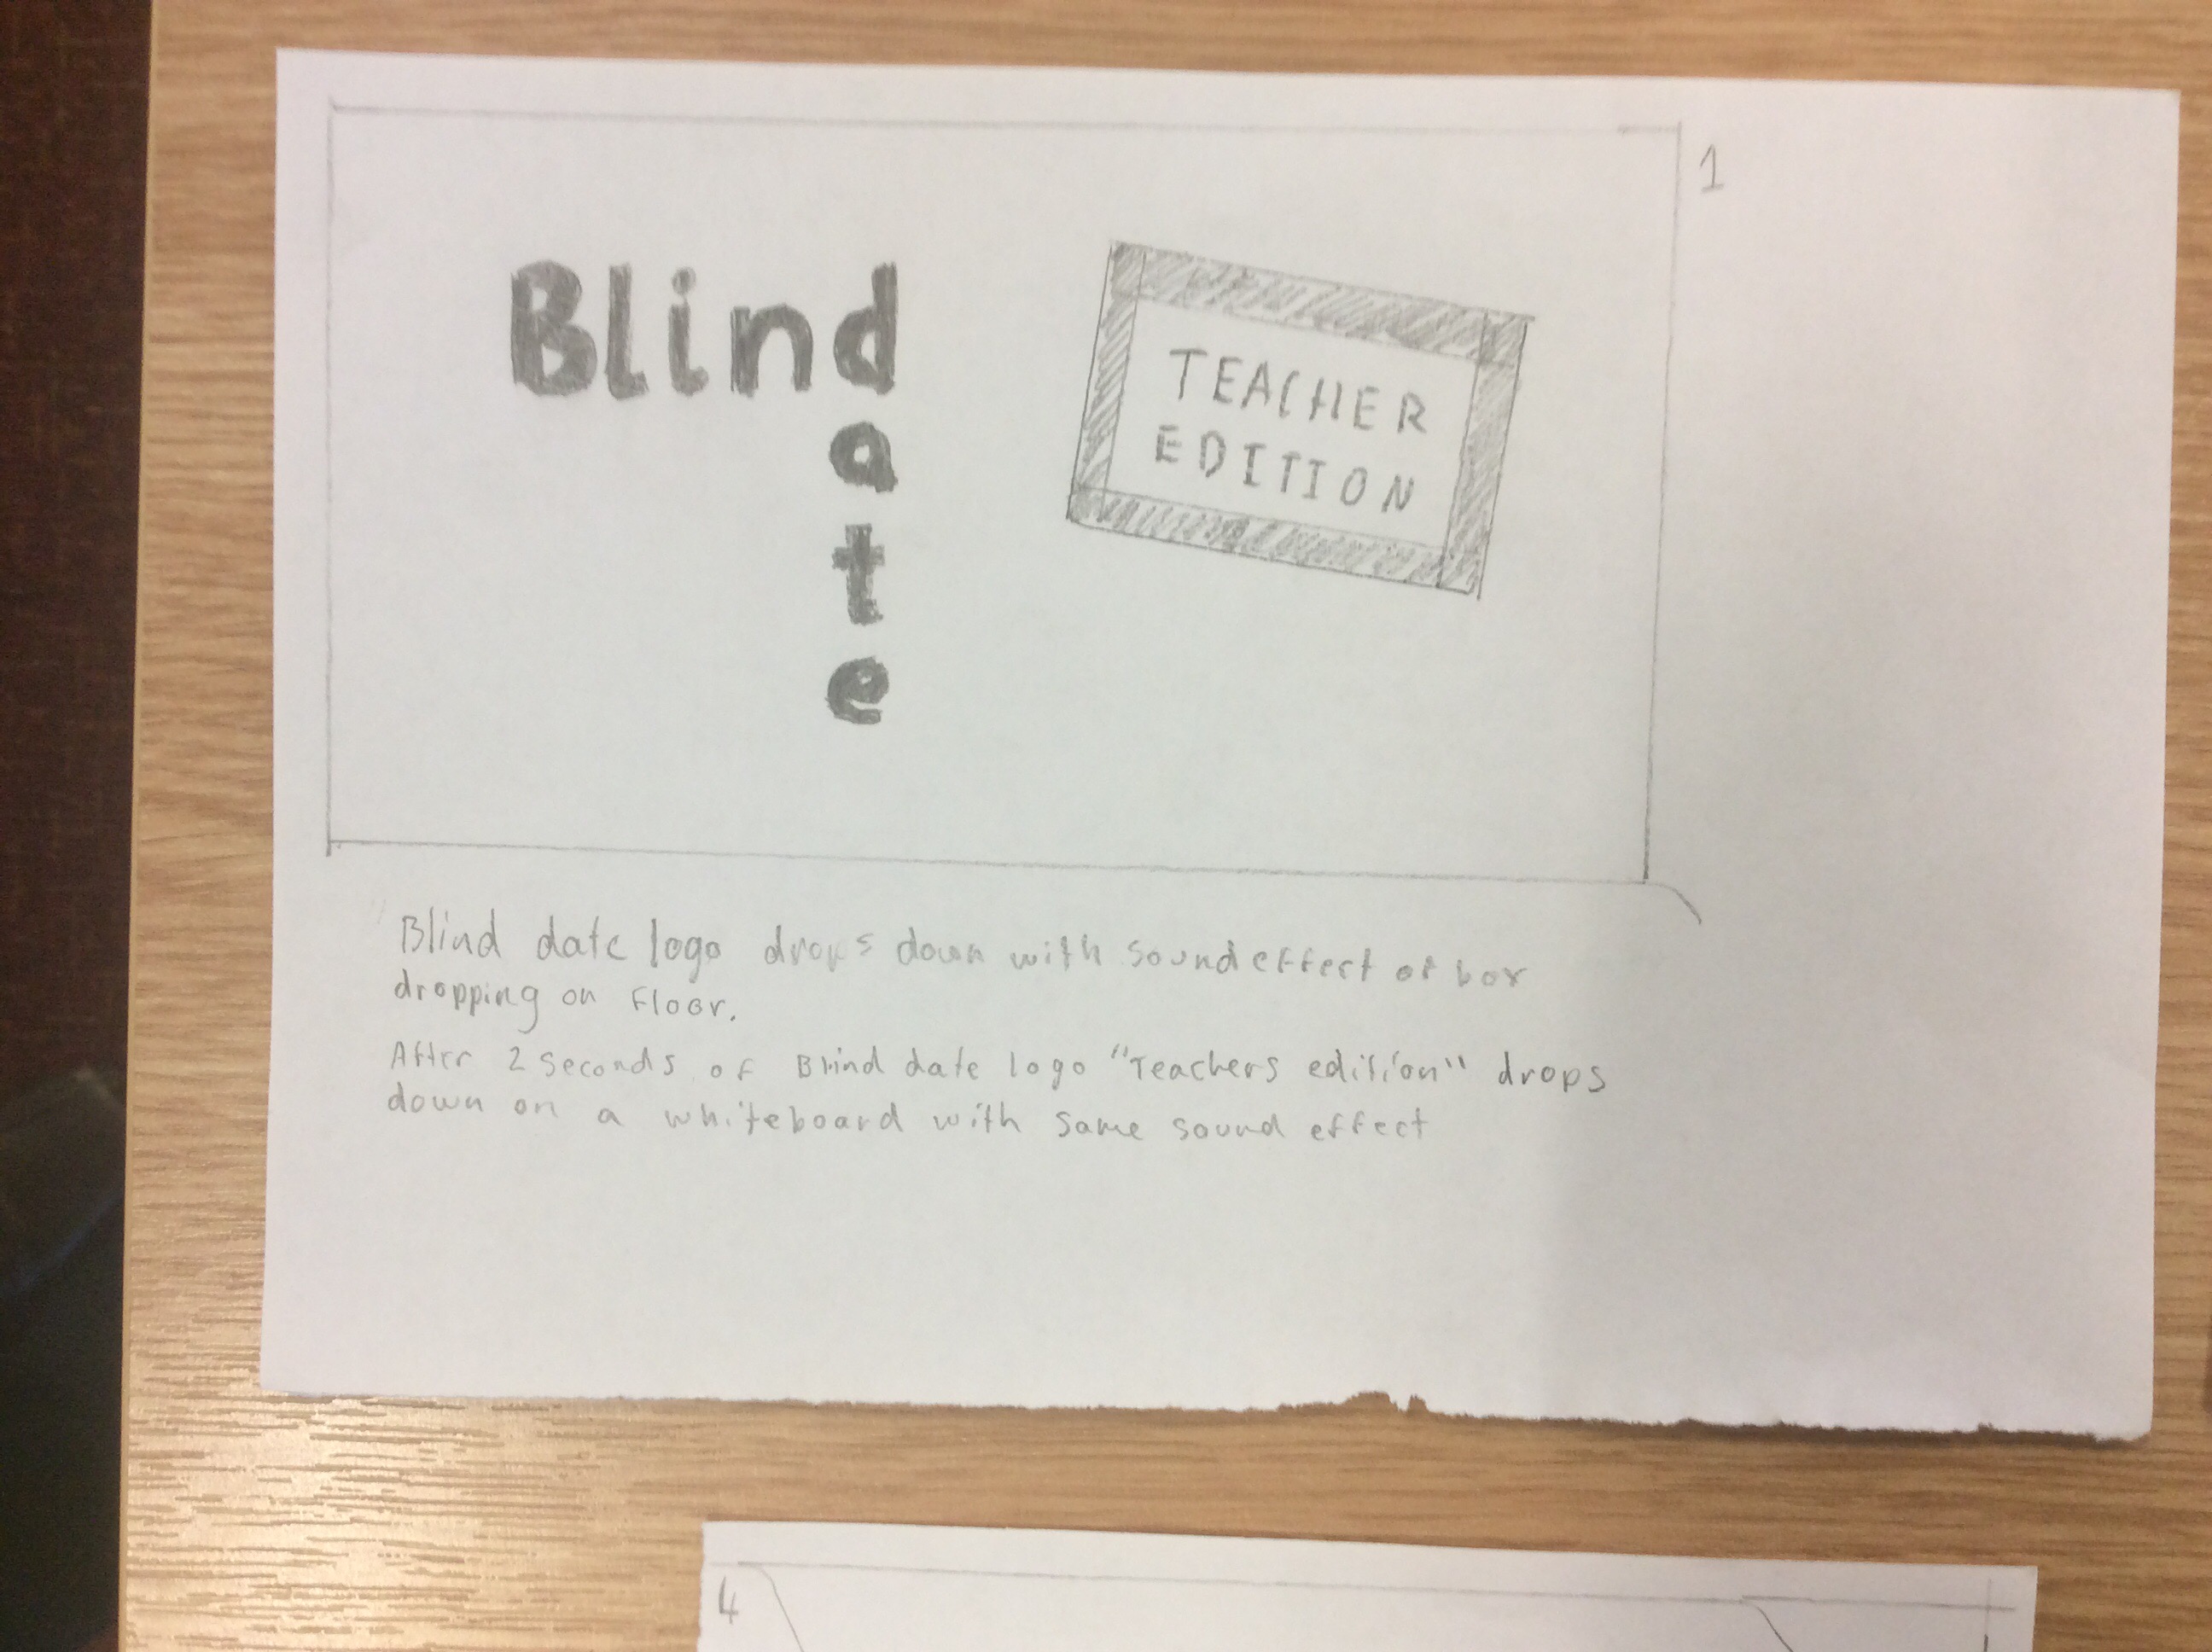 1
Blind
a
t
e
TEACHER
EDITION
Blind date logo drops down with sound effect of box
dropping on floor.
After 2 seconds of Blind date logo "Teachers edition" drops
down on a whiteboard with same sound effect
4